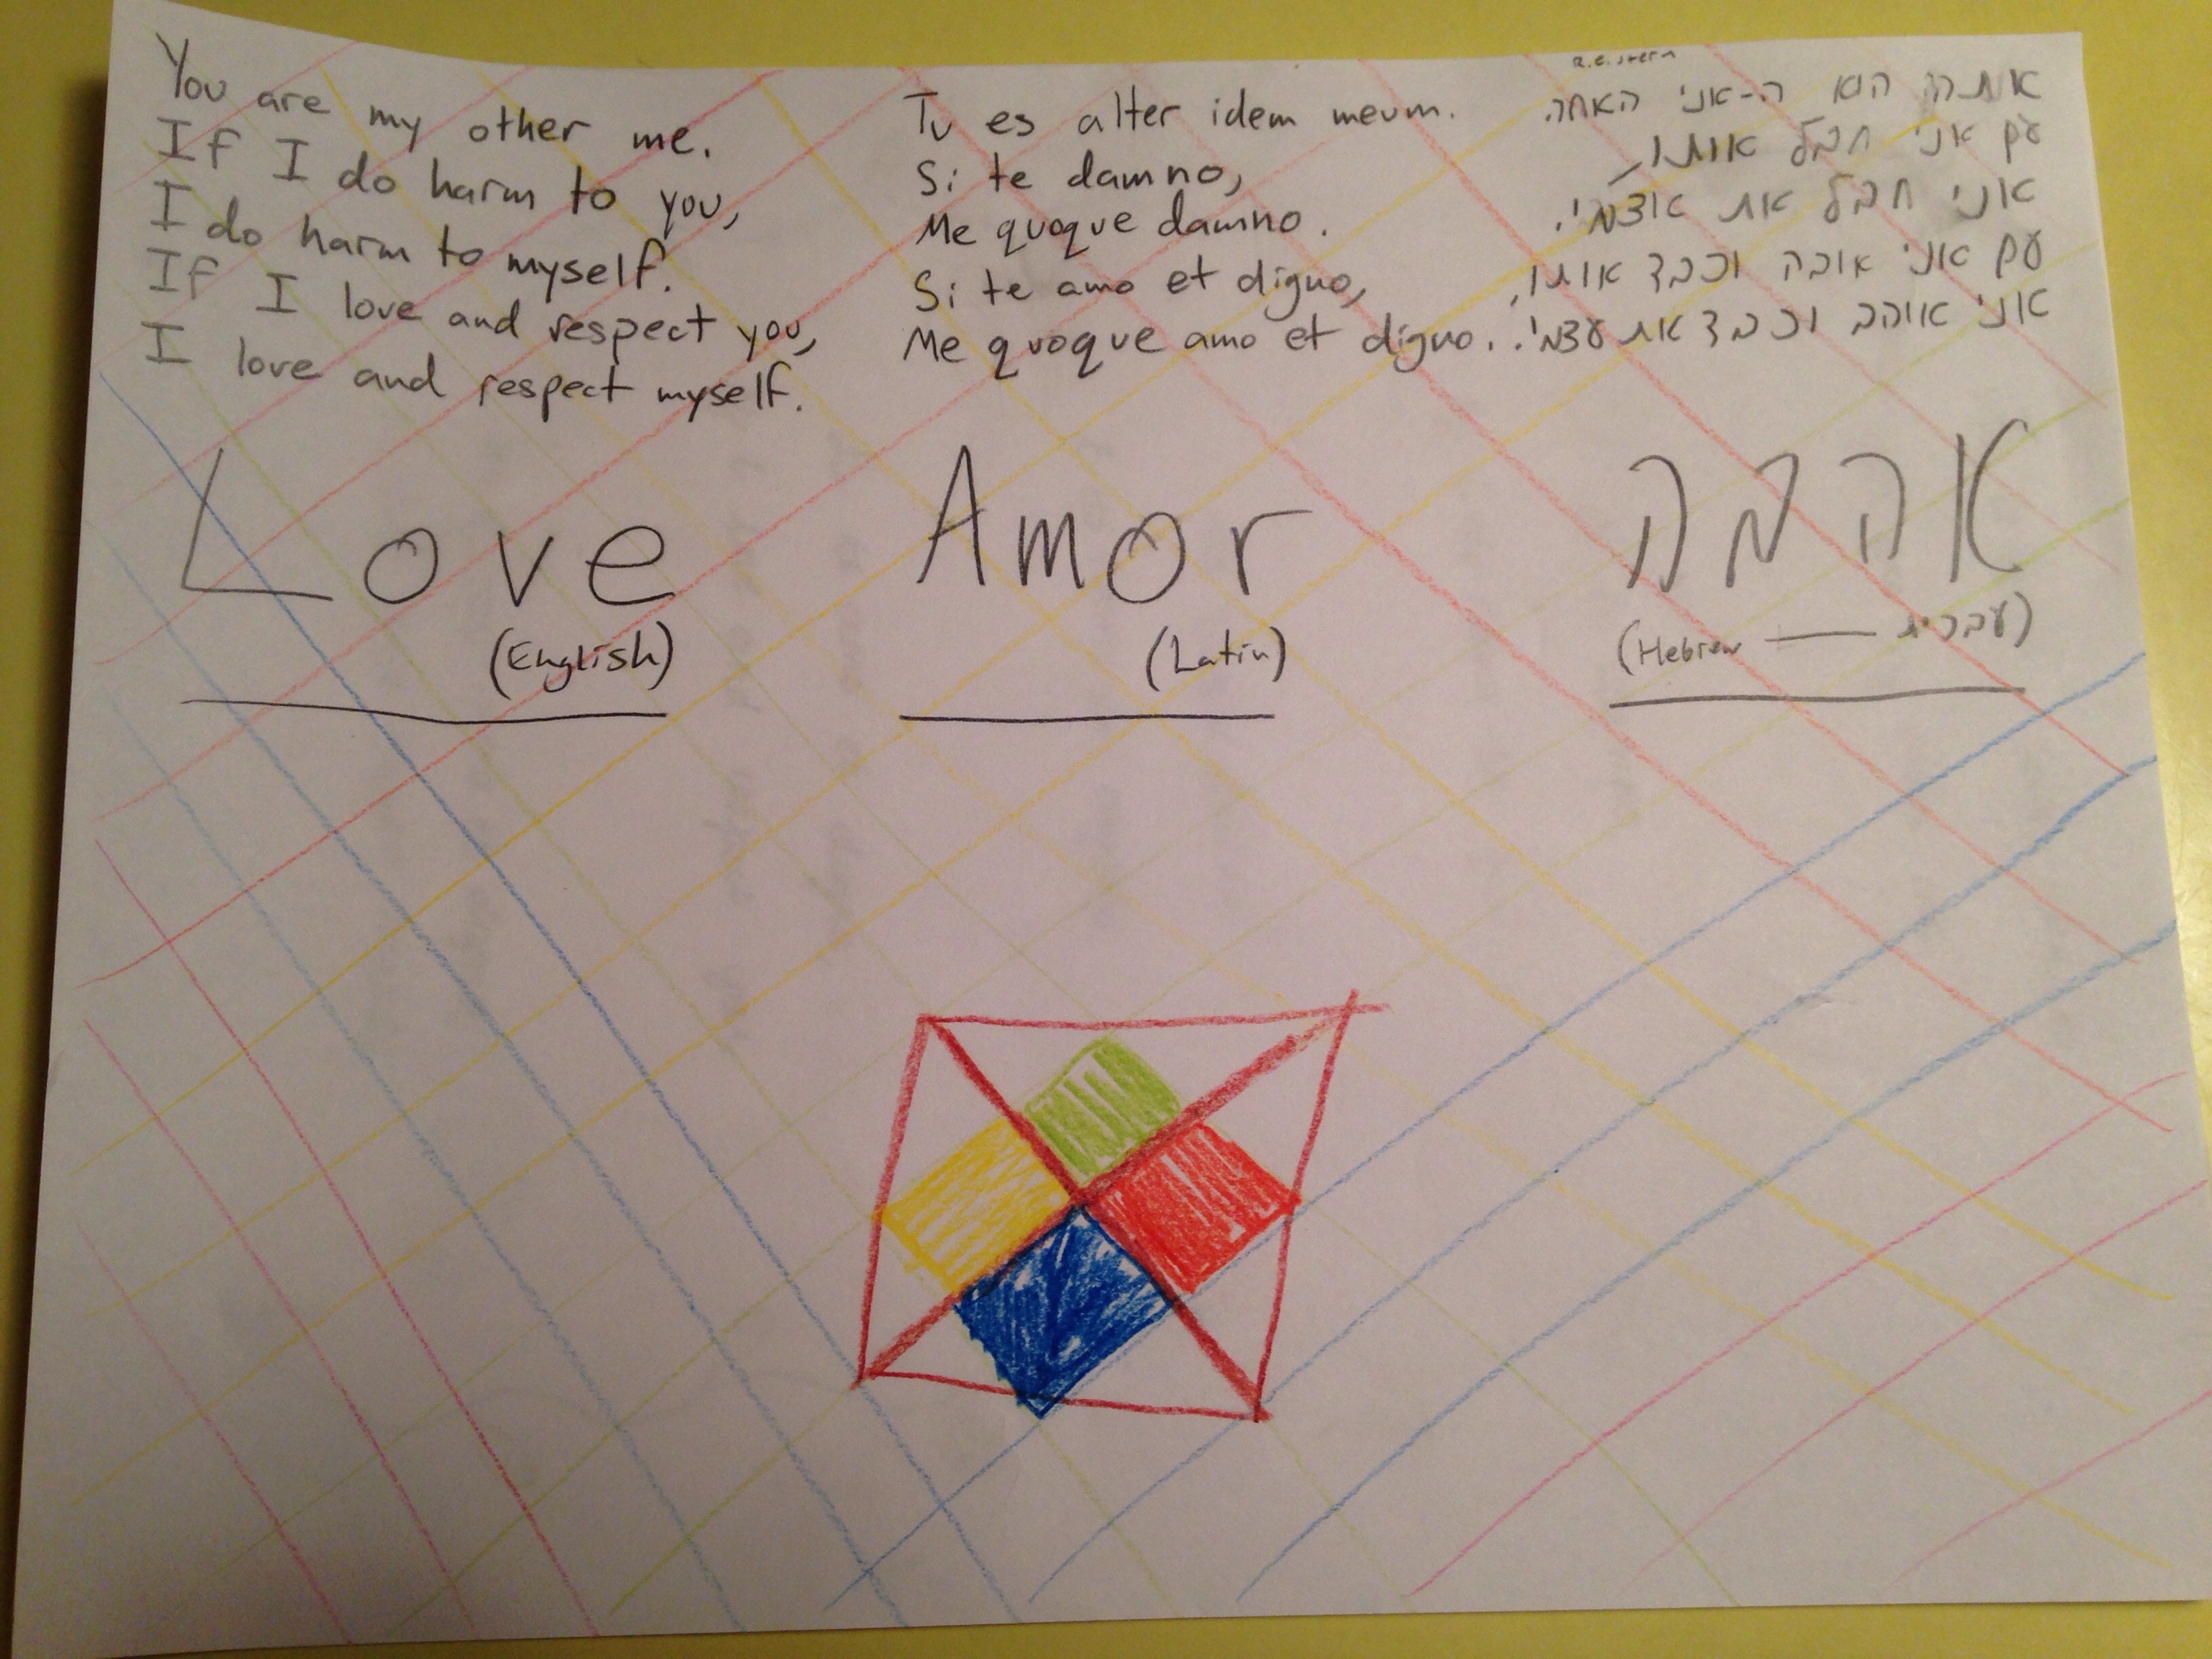 You are my other me.
If I do harm to you,
I do harm to myself.
If I love and respect you,
I love and respect myself.
Love
(English)
Tu es alter idem meum.
Si te damno,
Me quoque damno.
Si te amo et digno,
Me quoque amo et digno.
Amor
(Latin)
אתה הוא ה-אני האחר.
עם אני חבל אותו,
אני חבל את אוצמי.
עם אני אובה וכבד אותו,
אני אוהב וכבד את עצמי.
אהבה
(Hebrew — עברית)